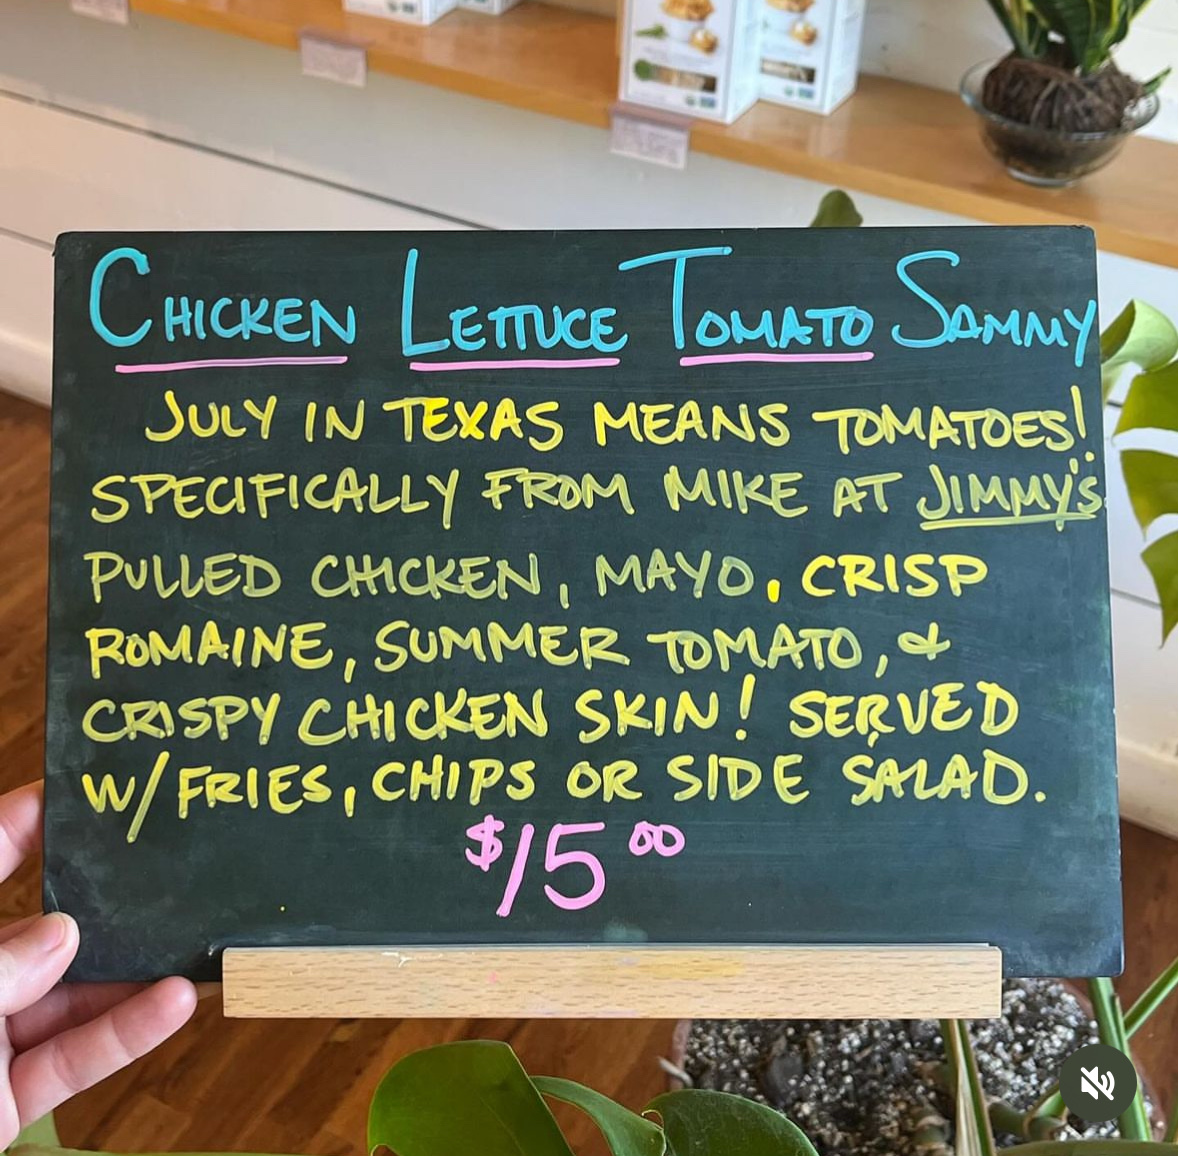 CHICKEN LETTUCE TOMATO SAMMY
JULY IN TEXAS MEANS TOMATOES!
SPECIFICALLY FROM MIKE AT JIMMY'S
PULLED CHICKEN, MAYO, CRISP
ROMAINE, SUMMER TOMATO, &
CRISPY CHICKEN SKIN! SERVED
W/FRIES, CHIPS OR SIDE SALAD.
$15.00